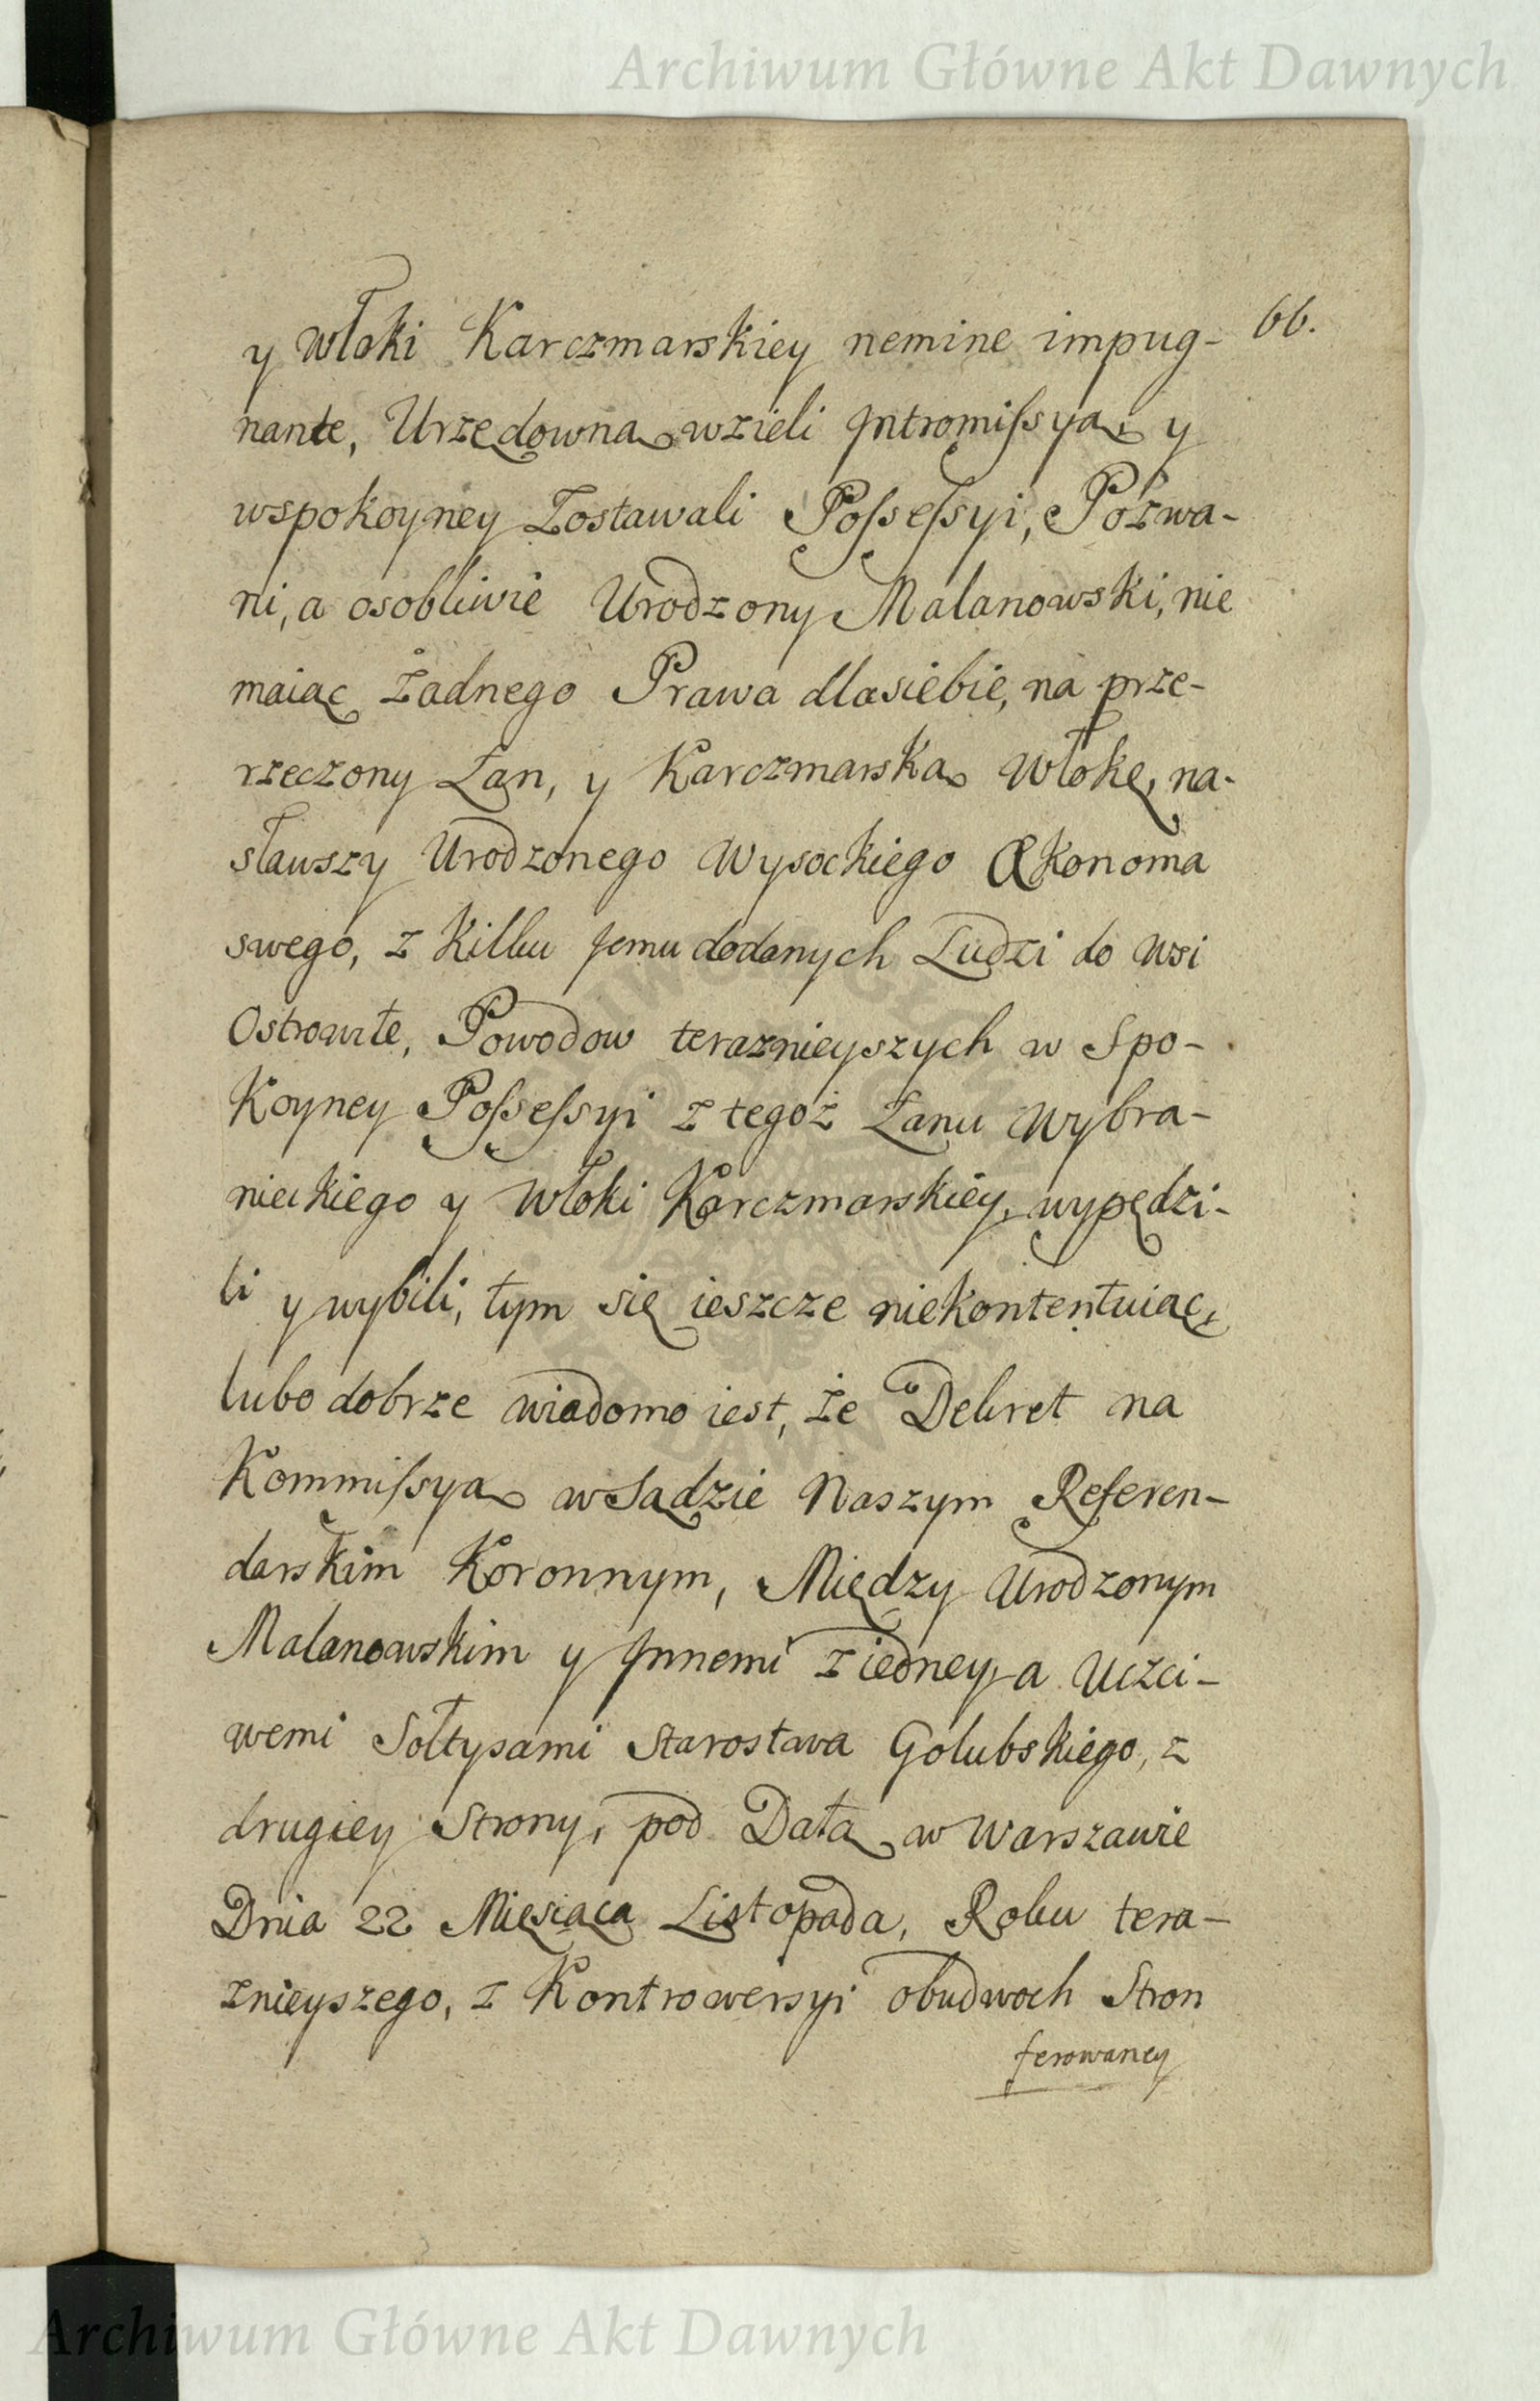 Archiwum Główne Akt Dawnych
66.
y Włoki Karczmarskiey nemine impug-
nante, Urzędowną wzieli Jntromiſsyą, y
wspokoyney Zostawali Poſseſsyi, Pozwa-
ni, a osobliwie Urodzony Malanowski, nie
maiąc żadnego Prawa dlasiebie, na prze-
rzeczony Łan, y Karczmarską Włokę, na-
sławszy Urodzonego Wysockiego Œkonoma
swego, z Kilku Jemu dodanych Ludzi do Wsi
Ostrowite, Powodow teraznieyszych w Spo-
Koyney Poſseſsyi z tegoż Łanu Wybra-
nieckiego y Włoki Karczmarskiey, wypędzi-
li y wybili, tym się ieszcze niekontentuiąc,
lubo dobrze wiadomo iest, że Dekret na
Kommiſsyą w Sądzie Naszym Referen-
darskim Koronnym, Między Urodzonym
Malanowskim y Jnnemi z iedney a Uczci-
wemi Sołtysami Starostwa Golubskiego, z
drugiey Strony, pod Datą w Warszawie
Dnia 22 Miesiąca Listopada, Roku tera-
znieyszego, z Kontrowersyi obudwoch Stron
ferowaney
Archiwum Główne Akt Dawnych